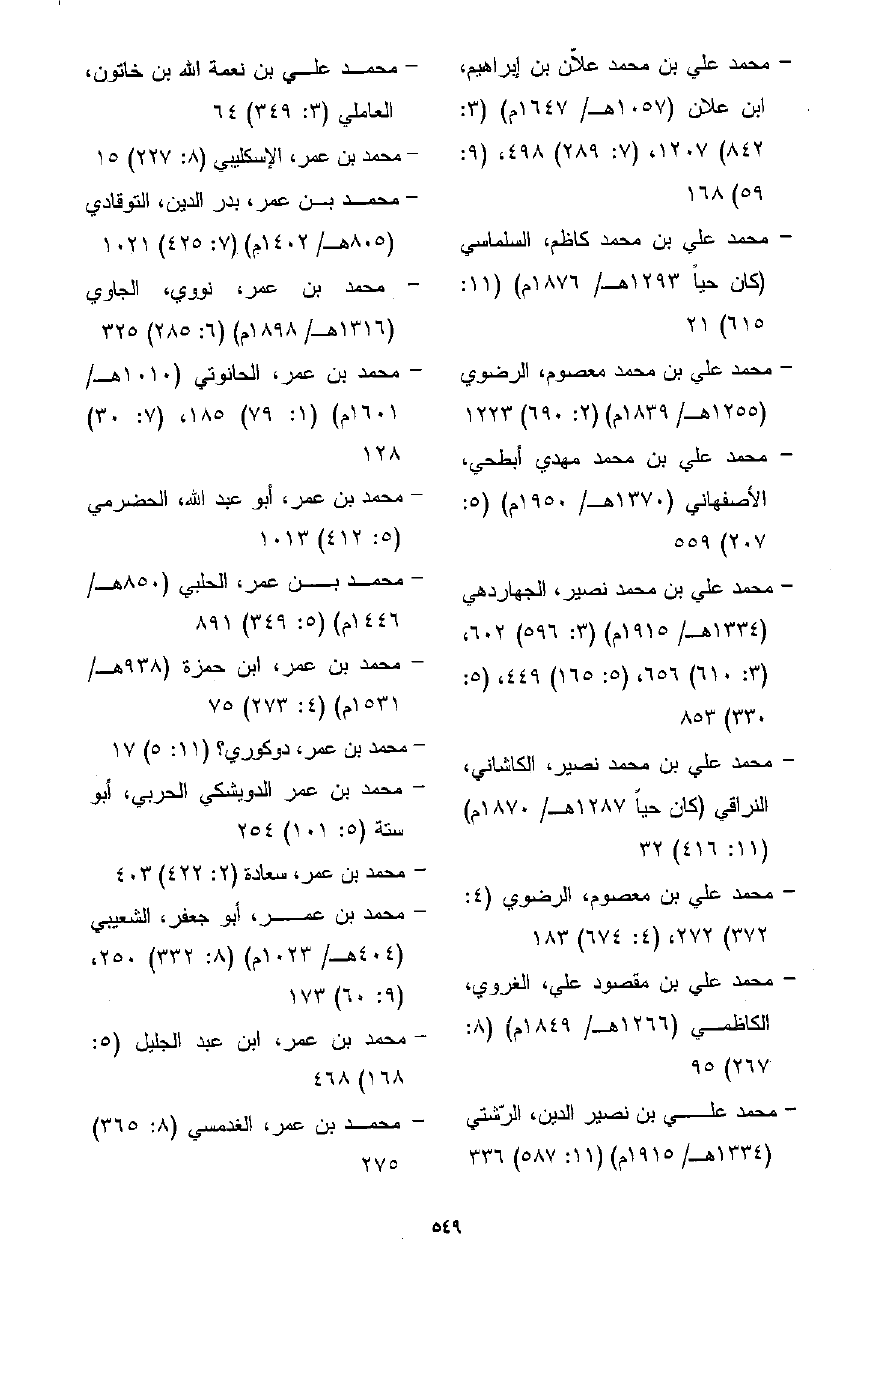 - محمد علي بن محمد علاّن بن إبراهيم،
ابن علان (١٠٥٧هـ/ ١٦٤٧م) (٣:
٨٤٢) ١٢٠٧، (٧: ٢٨٩) ٤٩٨، (٩:
٥٩) ١٦٨
- محمد علي بن محمد كاظم، السلماسي
(كان حياً ١٢٩٣هـ/ ١٨٧٦م) (١١:
٦١٥) ٢١
- محمد علي بن محمد معصوم، الرضوي
(١٢٥٥هـ/ ١٨٣٩م) (٢: ٦٩٠) ١٢٢٣
- محمد علي بن محمد مهدي أبطحي،
الأصفهاني (١٣٧٠هـ/ ١٩٥٠م) (٥:
٢٠٧) ٥٥٩
- محمد علي بن محمد نصير، الجهاردهي
(١٣٣٤هـ/ ١٩١٥م) (٣: ٥٩٦) ٦٠٢،
(٣: ٦١٠) ٦٥٦، (٥: ١٦٥) ٤٤٩، (٥:
٣٣٠) ٨٥٣
- محمد علي بن محمد نصير، الكاشاني،
النراقي (كان حياً ١٢٨٧هـ/ ١٨٧٠م)
(١١: ٤١٦) ٣٢
- محمد علي بن معصوم، الرضوي (٤:
٣٧٢) ٢٧٢، (٤: ٦٧٤) ١٨٣
- محمد علي بن مقصود علي، الغروي،
الكاظمي (١٢٦٦هـ/ ١٨٤٩م) (٨:
٢٦٧) ٩٥
- محمد علي بن نصير الدين، الرّشتي
(١٣٣٤هـ/ ١٩١٥م) (١١: ٥٨٧) ٣٣٦
- محمد علي بن نعمة الله بن خاتون،
العاملي (٣: ٣٤٩) ٦٤
- محمد بن عمر، الإسكليبي (٨: ٢٢٧) ١٥
- محمد بن عمر، بدر الدين، التوقادي
(٨٠٥هـ/ ١٤٠٢م) (٧: ٤٢٥) ١٠٢١
- محمد بن عمر، نووي، الجاوي
(١٣١٦هـ/ ١٨٩٨م) (٦: ٢٨٥) ٣٢٥
- محمد بن عمر، الحانوتي (١٠١٠هـ/
١٦٠١م) (١: ٧٩) ١٨٥، (٧: ٣٠)
١٢٨
- محمد بن عمر، أبو عبد الله، الحضرمي
(٥: ٤١٢) ١٠١٣
- محمد بن عمر، الحلبي (٨٥٠هـ/
١٤٤٦م) (٥: ٣٤٩) ٨٩١
- محمد بن عمر، ابن حمزة (٩٣٨هـ/
١٥٣١م) (٤: ٢٧٣) ٧٥
- محمد بن عمر، دوكوري؟ (١١: ٥) ١٧
- محمد بن عمر الدويشكي الحربي، أبو
ستة (٥: ١٠١) ٢٥٤
- محمد بن عمر، سعادة (٢: ٤٢٢) ٤٠٣
- محمد بن عمر، أبو جعفر، الشعيبي
(٤٠٤هـ/ ١٠٢٣م) (٨: ٣٣٢) ٢٥٠،
(٩: ٦٠) ١٧٣
- محمد بن عمر، ابن عبد الجليل (٥:
١٦٨) ٤٦٨
- محمد بن عمر، الغدمسي (٨: ٣٦٥)
٢٧٥
٥٤٩